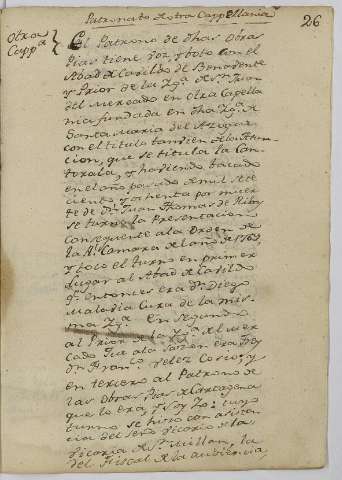 Patronato de otra Cappellania
26
Otra
Capp.ª
El Patrono de dhas Obras
Pias tiene voz, y voto con el
Abad y Cavildo de Benavente
y Prior de la Yg.ª de Sn. Juan
del Mercado en otra Capella
nia fundada en dha Yg.ª de
Santa Maria del Azogue
con el titulo tambien de la Asum
cion, que se titula la Can
toralia, y haviendo bacado
en el año pasado de mil sete
cientos, y ochenta por muer
te de Dn. Juan Thomas de
se turno la Presentacion
conseguente a la Orden de
la Rl. Camara del año de 1769
y toco el turno en primer
lugar al Abad de Cavildo
qe. entonces era Dn. Diego
Cura de la mis
ma Yg.ª en segundo
al Prior de la Yg.ª del Mer
cado que a la sazon era frey
Dn. Fran.co Velez Cosio, y
en tercero al Patrono de
las obras Pias de Cartagena
que lo era, y soy Yo: cuyo
turno se hizo con asisten
cia del Señor Vicario de la
Vicaria de Sn. Millan, la
del Fiscal de la audiencia